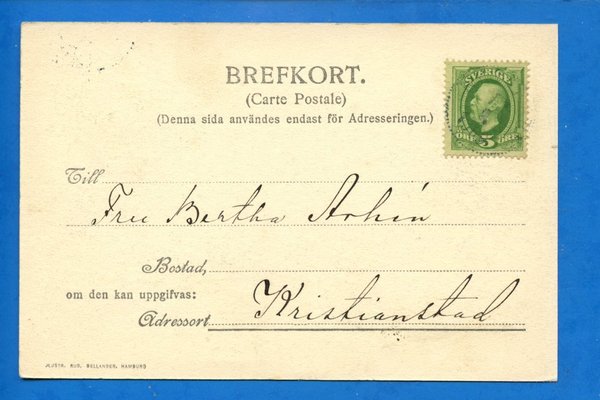 BREFKORT.
(Carte Postale)
(Denna sida användes endast för Adresseringen.)
SVERIGE
ÖRE 5 ÖRE
Till
Fru Bertha
Bostad,
om den kan uppgifvas:
Adressort Kristianstad
HAMBURG